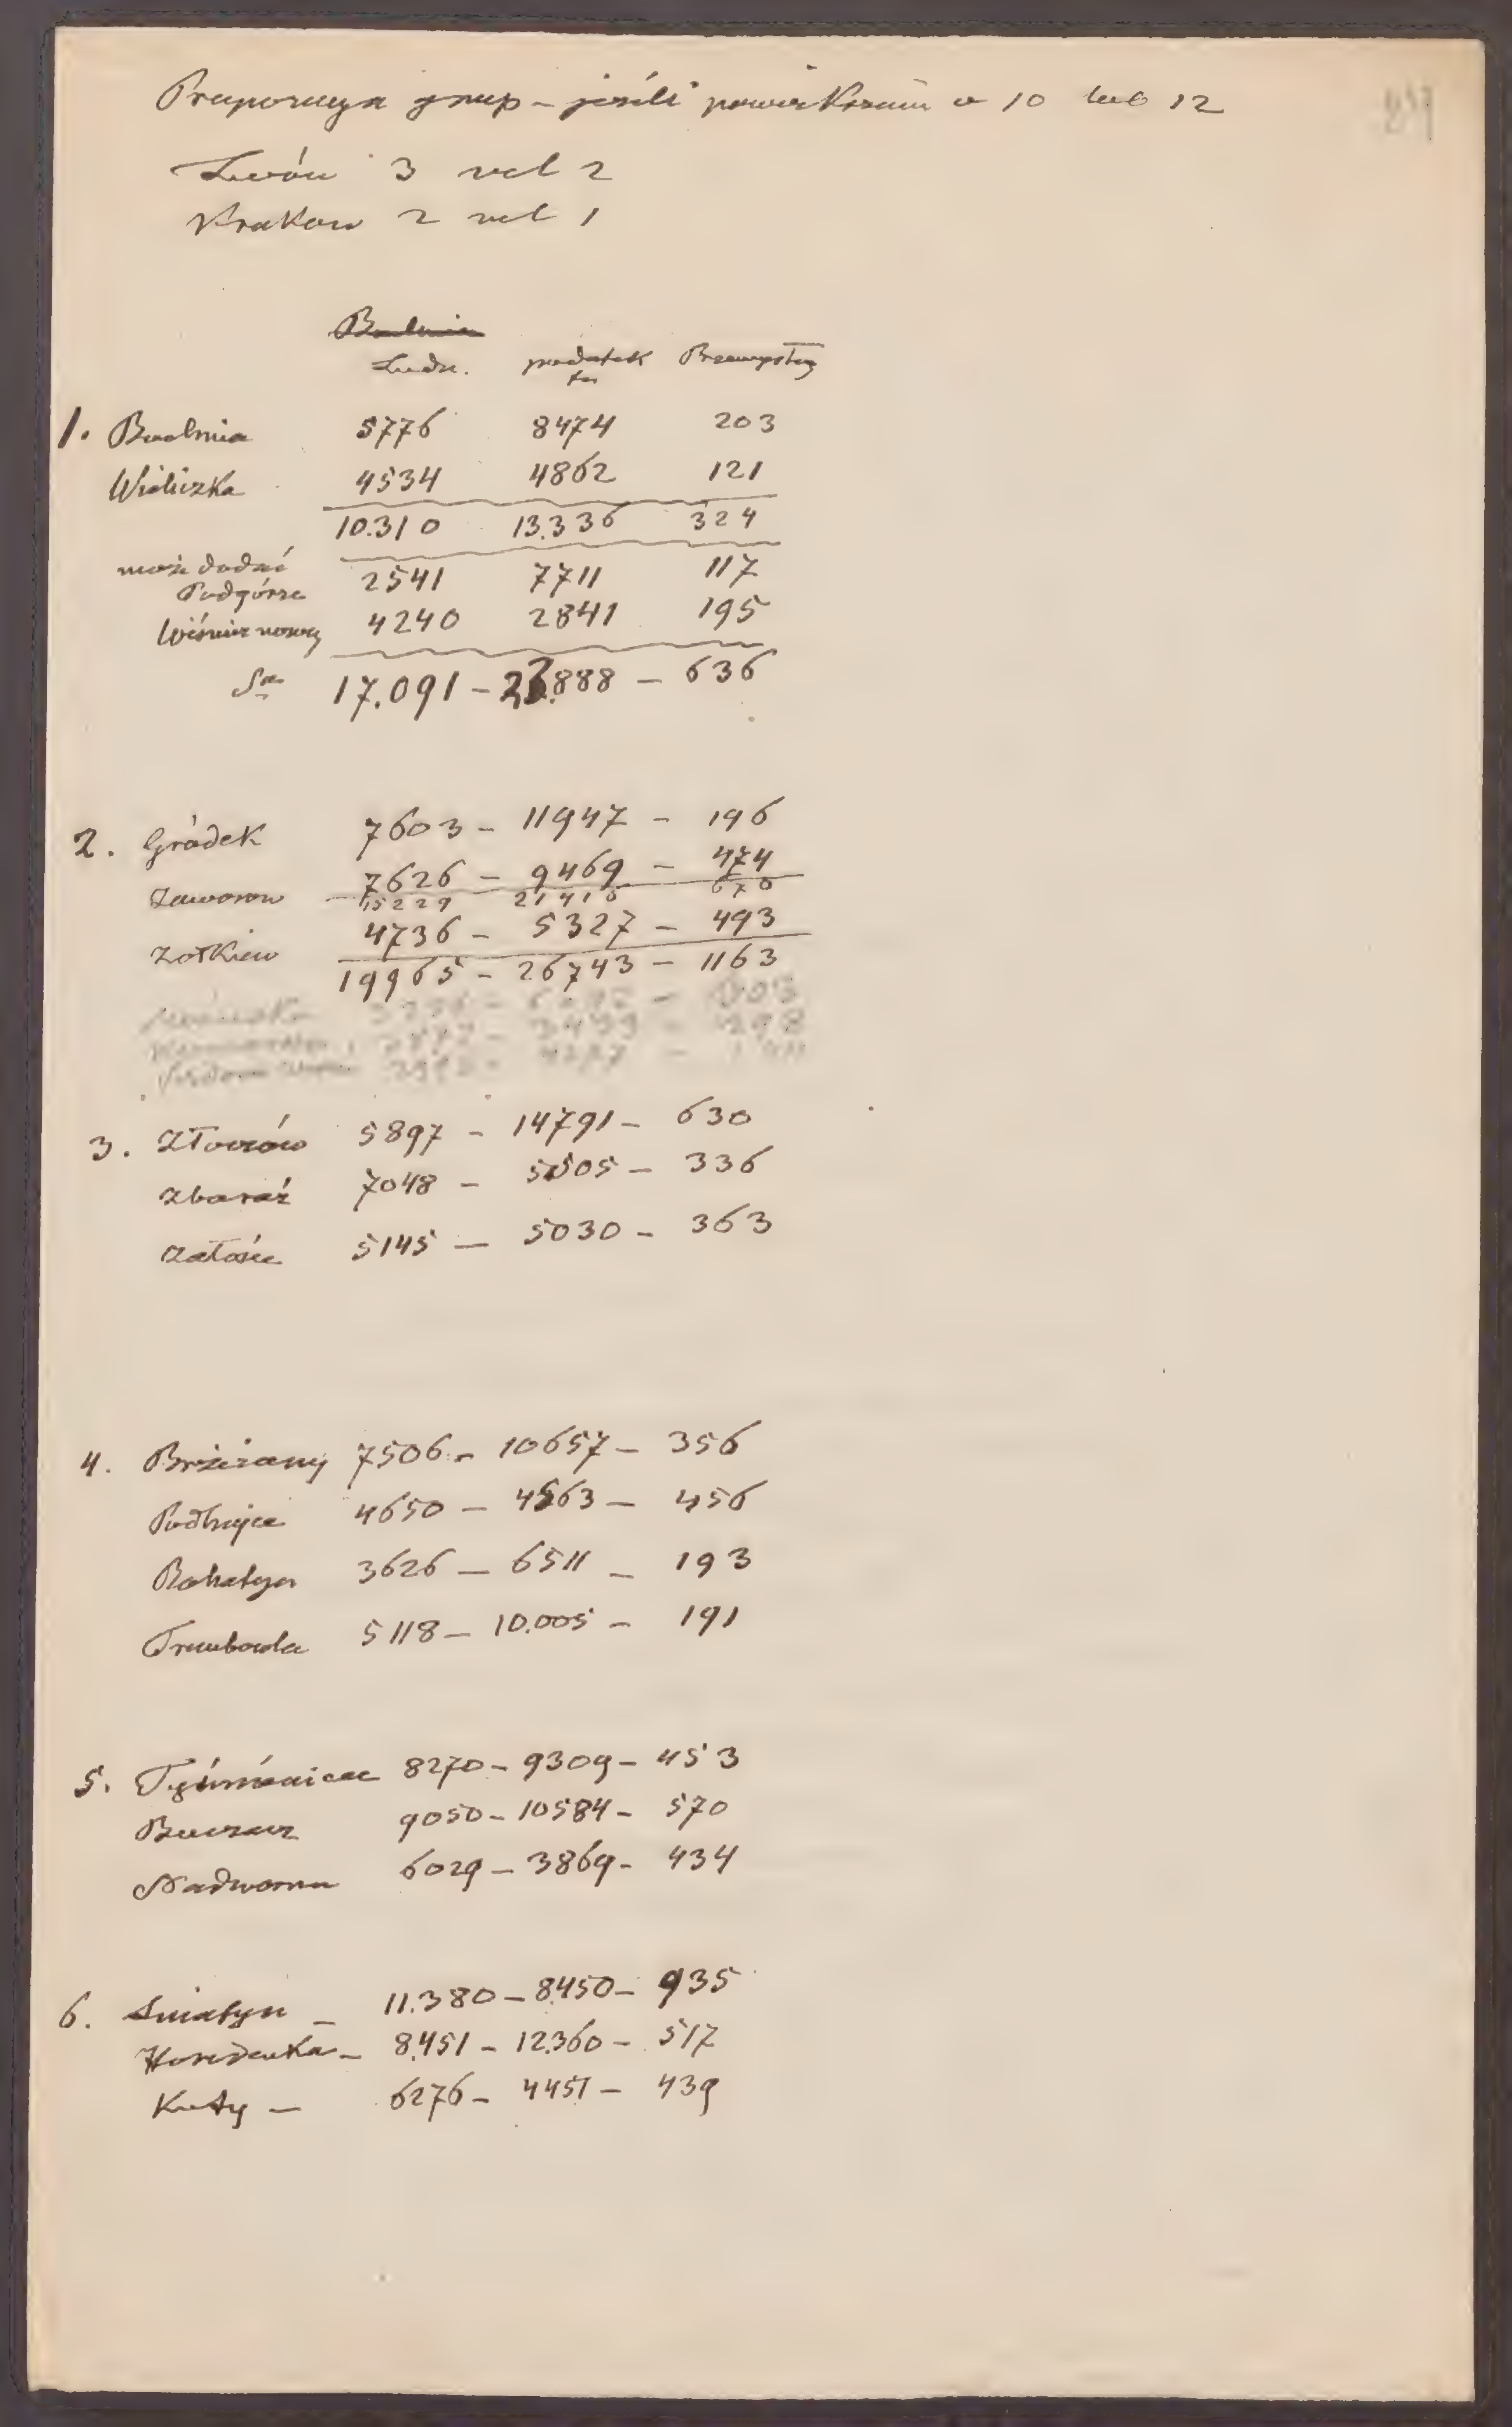 Proporcya grup – jeśli powiększani o 10 lub 12
Lwów 3 vel 2
Krakow 2 vel 1
Bochnia
Ludn. podatek Przemysłcy
1. Bochnia 5776 8474 203
Wieliczka 4534 4862 121
10.310 13.336 324
może dodać
Podgórze 2541 7711 117
Wiśnicz nowy 4240 2841 195
Sa 17.091 – 23.888 – 636
2. Gródek 7603 – 11947 – 196
Jaworow 7626 – 9469 – 474
15229 21416 670
Zołkiew 4736 – 5327 – 493
19965 – 26743 – 1163
3. Złoczów 5897 – 14791 – 630
Zbaraż 7048 – 5505 – 336
Załośce 5145 – 5030 – 363
4. Brzeżany 7506 – 10657 – 356
Podhajce 4650 – 4563 – 456
Rohatyn 3626 – 6511 – 193
Trembowla 5118 – 10.005 – 191
5. Tyśmienica 8270 – 9309 – 453
Buczacz 9050 – 10584 – 570
Nadworna 6029 – 3869 – 434
6. Sniatyn – 11.380 – 8.450 – 935
Horodenka – 8.451 – 12.360 – 517
Kuty – 6276 – 4451 – 439